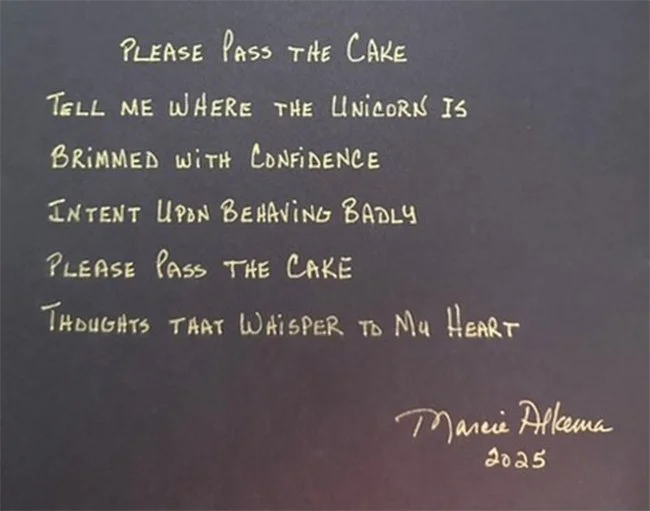 Please Pass the Cake
Tell me where the Unicorn Is
Brimmed with Confidence
Intent Upon Behaving Badly
Please Pass the Cake
Thoughts that Whisper to My Heart
Marcie Alkema
2025